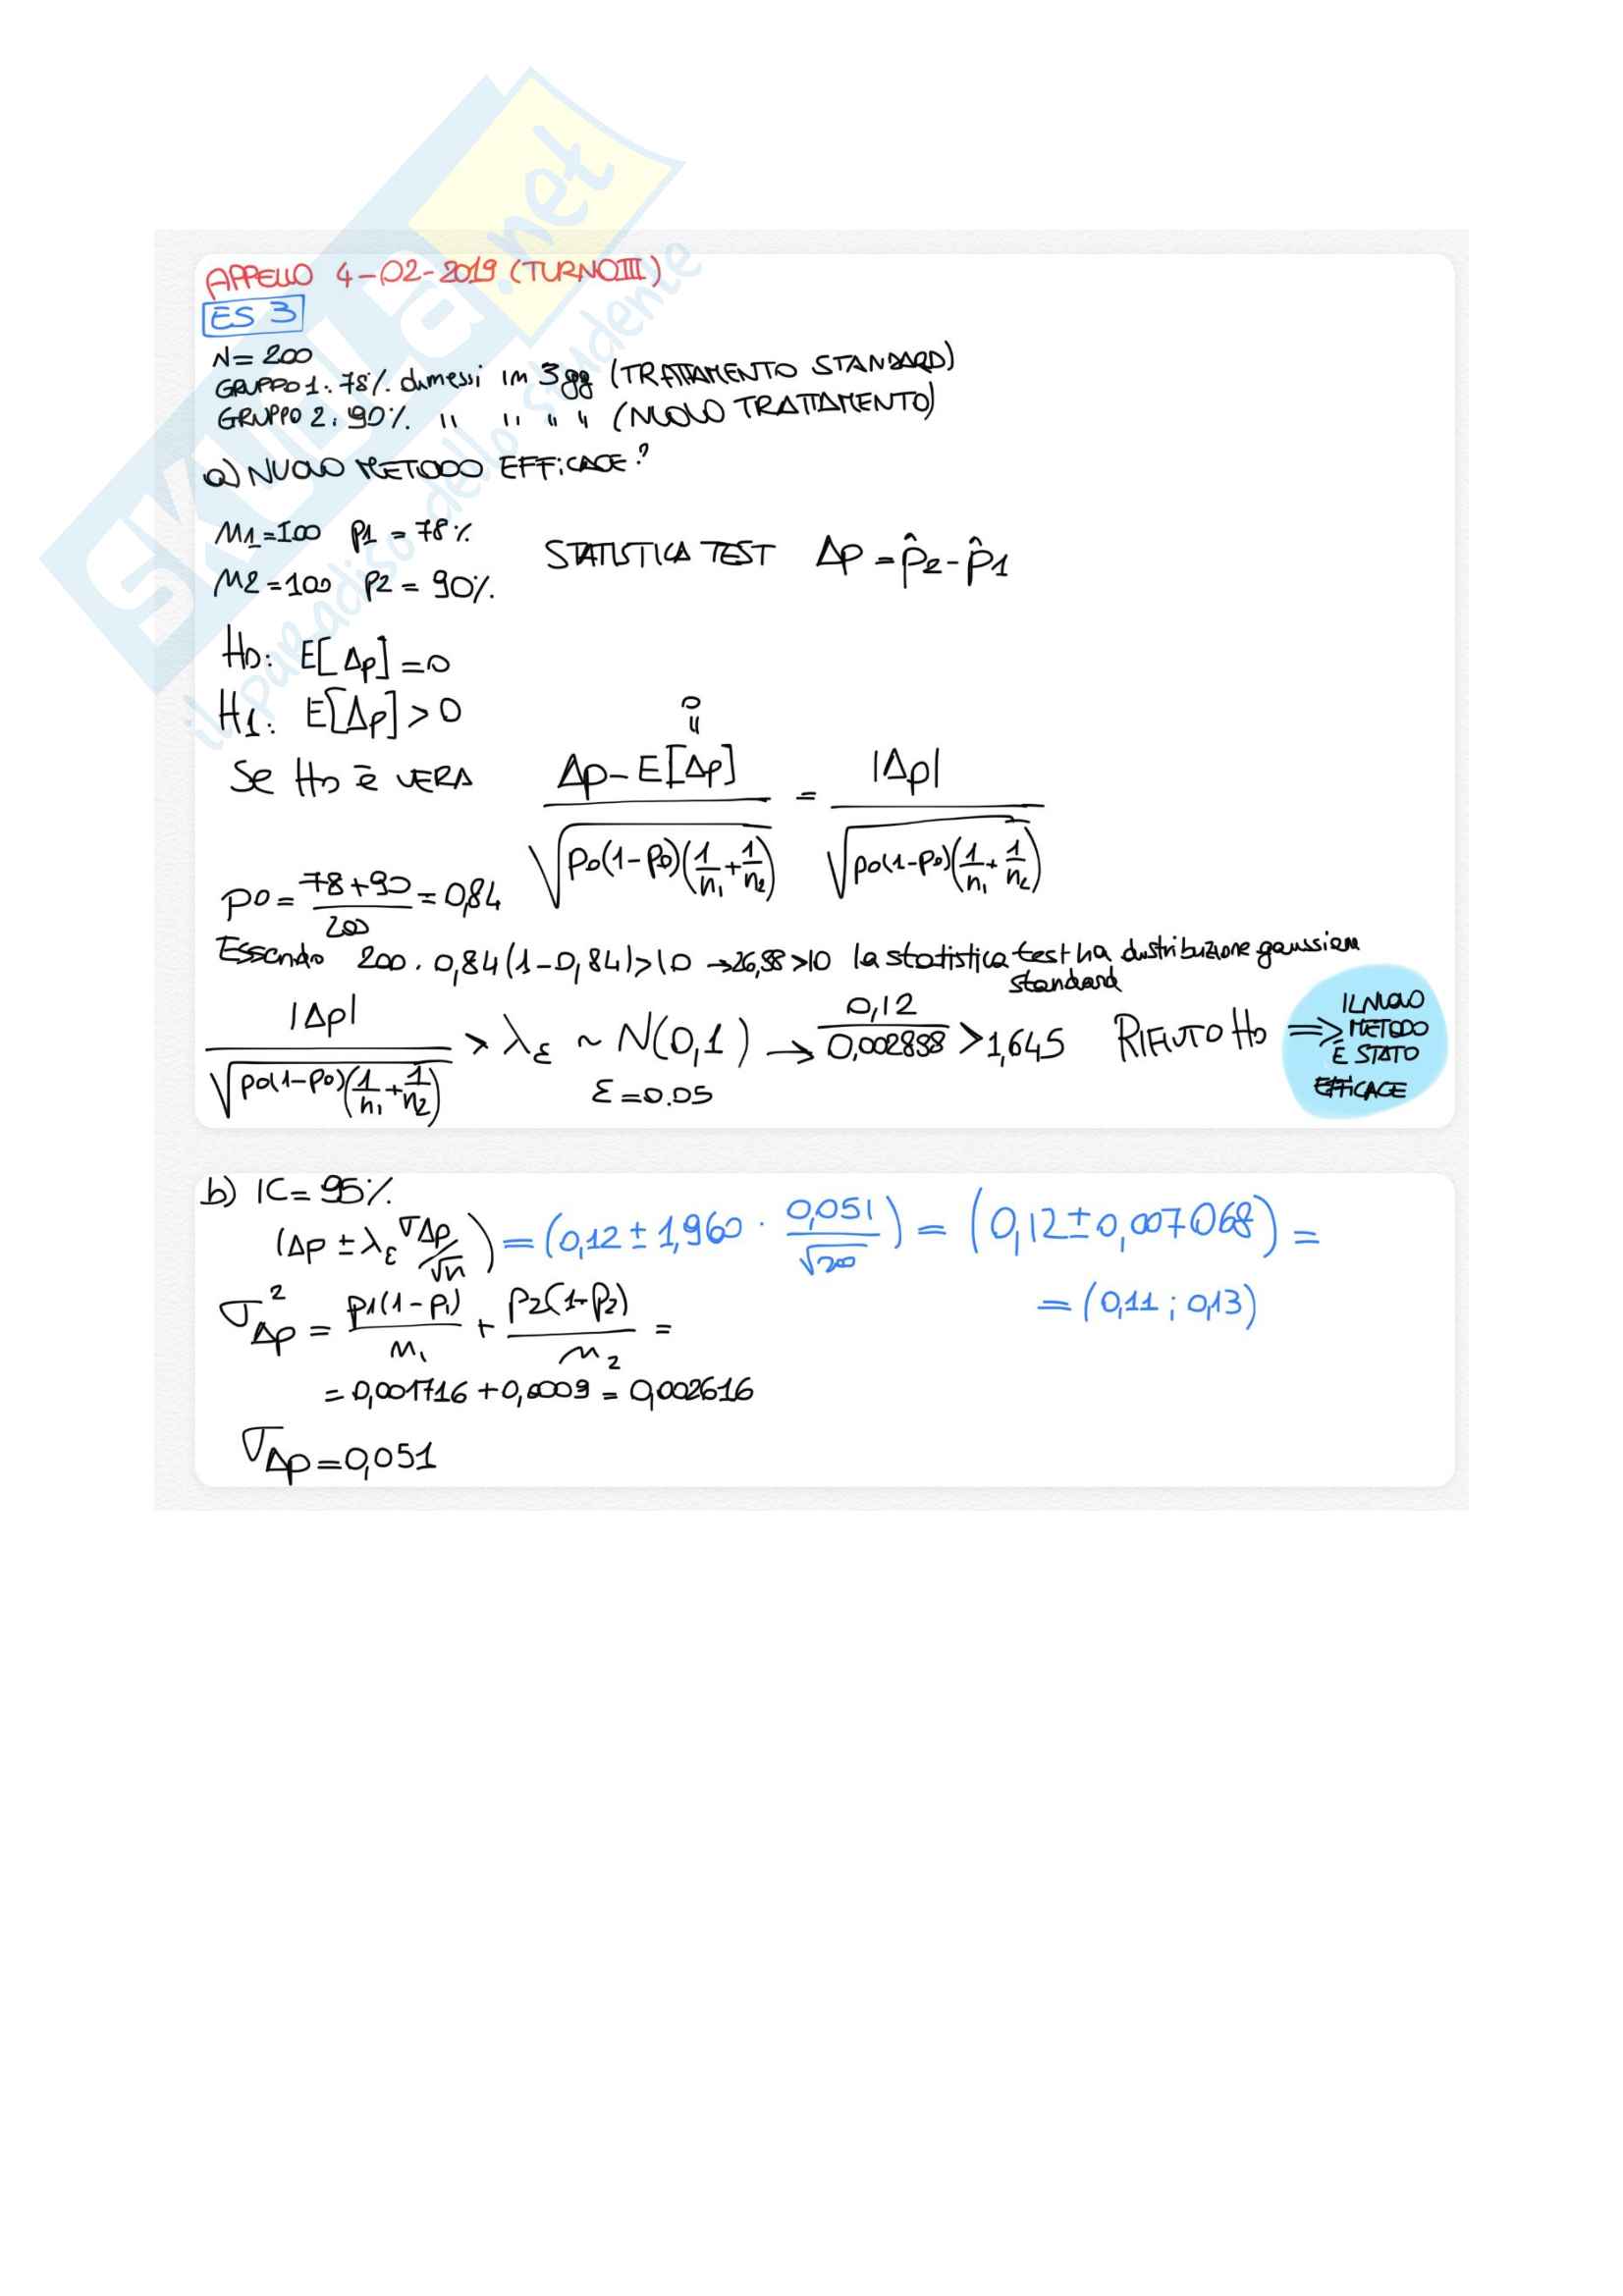 SKUOLA.net
il paradiso dello studente
APPELLO 4-02-2019 (TURNO III)
ES 3
N = 200
GRUPPO 1: 78% dimessi in 3 gg (TRATTAMENTO STANDARD)
GRUPPO 2: 90% " " " " (NUOVO TRATTAMENTO)
a) NUOVO METODO EFFICACE?
M1 = 100 p1 = 78%
STATISTICA TEST Δp = p̂2 - p̂1
M2 = 100 p2 = 90%
H0: E[Δp] = 0
H1: E[Δp] > 0
Se H0 è VERA (Δp - E[Δp]) / √(p0(1-p0)(1/n1 + 1/n2)) = |Δp| / √(p0(1-p0)(1/n1 + 1/n2))
0
"
p0 = (78+90)/200 = 0,84
Essendo 200 · 0,84(1-0,84) > 10 → 26,88 > 10 la statistica test ha distribuzione gaussiana standard
|Δp| / √(p0(1-p0)(1/n1 + 1/n2)) > λε ~ N(0,1) → 0,12/0,002888 > 1,645 RIFIUTO H0 ⇒ IL NUOVO
METODO
È STATO
EFFICACE
ε = 0.05
b) IC = 95%
(Δp ± λε σΔp/√n) = (0,12 ± 1,960 · 0,051/√200) = (0,12 ± 0,007068) =
= (0,11 ; 0,13)
σ²Δp = p1(1-p1)/M1 + p2(1-p2)/M2 =
= 0,001716 + 0,0009 = 0,002616
σΔp = 0,051